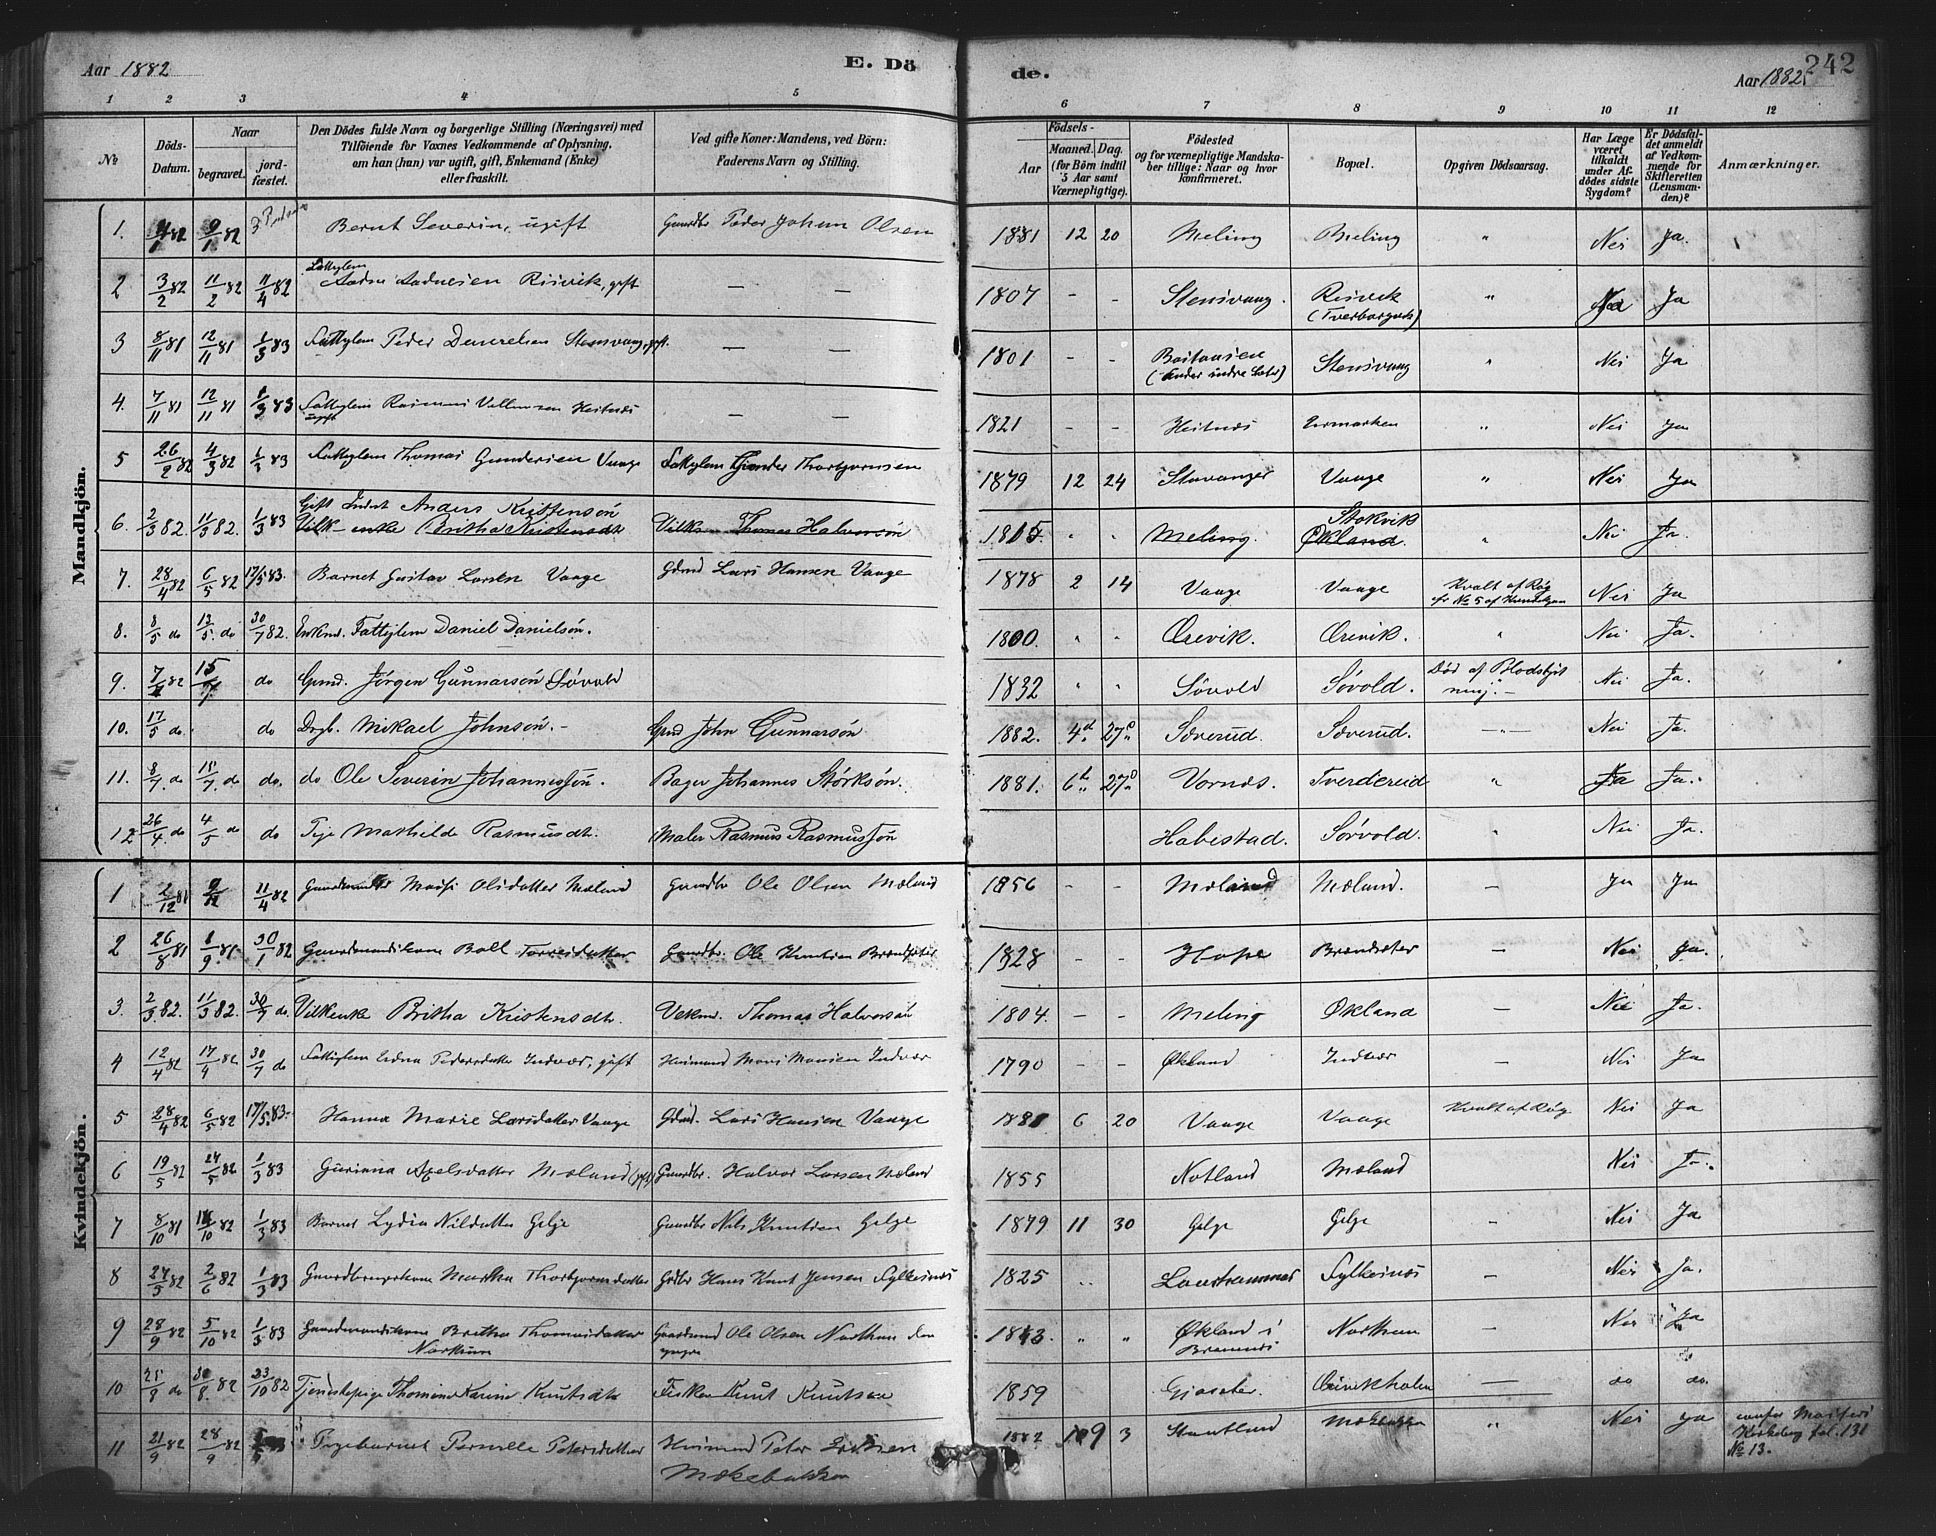 Aar 1882
E. Dö
de.
242
Aar 1882.
1 2 3 4 5 6 7 8 9 10 11 12
№
Döds-Datum.
Naar
begravet.
jord-fæstet.
Den Dödes fulde Navn og borgerlige Stilling (Næringsvei) med
Tilföiende for Voxnes Vedkommende af Oplysning,
om han (hun) var ugift, gift, Enkemand (Enke)
eller fraskilt.
Ved gifte Koner: Mandens, ved Börn:
Faderens Navn og Stilling.
Födsels-
Aar
Maaned. Dag.
(for Börn indtil
5 Aar samt
Værnepligtige).
Födested
og for værnepligtige Mandska-
ber tillige: Naar og hvor
konfirmeret.
Bopæl.
Opgiven Dödsaarsag.
Har Læge
været
tilkaldt
under Af-
dödes sidste
Sygdom?
Er Dödsfal-
det anmeldt
af Vedkom-
mende for
Skifteretten
(Lensman-
den)?
Anmærkninger.
Mandkjön.
1. 9/1 82 Bernt Severin, ugift Gaardbr Peder Johan Olsen 1881 12 20 Meling Meling " Nei Ja.
2 3/2 82 11/2 82 11/4 82 Fattiglem Aadne Aadnesen Risvik, gift — — 1807 - - Stensvaag Risvik " Ja
3 8/11 81 12/11 81 1/3 83 Fattiglem Peder Stensvaag, gift. — — 1801 - - (under indre Sæter) Stensvaag " Nei Ja
4. 7/11 81 12/11 81 1/3 83 Fattiglem Rasmus Heitnæs ugift — — 1821 - - Heitnæs " Nei Ja
5 26/2 82 4/3 82 1/3 83 Fattiglem Thomas Gundersen Vaage Fattiglem Gunder Thorbjørnsen 1879 12 24 Stavanger Vaage " Nei Ja
6. 2/3 82. 11/3 82. 1/3 83 Gift Anders Kristensøn Vilk- enke Britha Kristensdt Vilks Thomas Halvorsøn 1815. " " Meling. Stokvik Økland. " Nei Ja.
7. 28/4 82 6/5 82 17/5 83. Barnet Gustav Larsen Vaage Gdmd Lars Hansen Vaage 1878 2 14 Vaage Vaage Kvalt af Røg cfr № 5 af Kvindekjøn Nei Ja
8. 8/5 do 13/5. do 30/7 82. Enkmd. Fattiglem Daniel Danielsøn. 1800 " " Ørevik. Ørevik. " Nei Ja.
9. 7/ 82 15/7. do Gmd. Jørgen Gunnarsøn Søvold 1832 " " Søvold Søvold. Død af Nei Ja.
10. 17/5 do. do Drgb. Mikael Johnsøn. - Gmd John Gunnarsøn 1882. 4d 27 Sæverud. Sæverud. —"— Nei Ja.
11. 8/7. do 15/7. do do. do Ole Severin Johannessøn. Bager Johannes Størksøn. 1881. 6 27 Vornæs. Tverdereid " Ja Ja.
12 26/4. do 4/5 do do Pige Mathilde Rasmusdt. Maler Rasmus Rasmussøn Habestad. Sørvold. " Nei Ja.
Kvindekjön.
1 2/12 81 9/12 11/4 82 Marsi Olsdatter Mæland Gaardbr Ole Olsen Mæland 1856 - - Mæland Mæland. — Ja Ja
2 26/8 81 1/9 81 30/1 82 Gaardmandskone Boll Torresdatter Gaardbr. Ole Knutsen Brandsæter 1828 - - Hope Brandsæter — Nei Ja.
3. 2/3 82. 11/3 82. 30/7 do. Vilkenk Britha Kristensdt. Vekmd. Thomas Halvorsøn 1804. - - Meling Økland — Nei Ja.
4 12/4 82 17/4 82 30/7 do Fattiglem Pedersdatter Indvær, gift Husmand Mons Monsen Indvær 1790 - - Økland Indvær — Nei Ja
5 28/4 82 6/5 82 17/5. 83. Hanna Marie Larsdatter Vaage Gdmd. Lars Hansen Vaage 1881 6 20 Vaage Vaage Kvalt af Røg Nei Ja
6 19/5 82 24/5 82 1/3 83 Guriana Axelsdatter Mæland (gift) Gaardbr. Halvor Larsen Mæland 1855 Notland Mæland Nei Ja.
7 8/10 81 /10 82 1/3 83 Barnet Lydia Nilsdatter Gelje Gaardbr Nils Knutsen Gelje 1879 11 30 Gelje Gelje - Nei Ja
8 27/5 82 2/6 82 1/3 83 Gaardbrugerkone Martha Thorbjørnsdatter Gdbr Hans Knut Jensen Fylkesnæs 1825 " Fylkesnæs — Nei Ja.
9 28/9 82 5/10 82 1/3 83 Gaardmandskone Britha Thomasdatter Gaardmd Ole Olsen den yngre 1843. " " Økland i Bremnæs — Nei Ja
10 25/8 do 30/8. 82 23/10 82 Tjenestepige Thomine Karine Knutsdt Fisker Knut Knutsen 1859 Gjøsæter. — do do.
11 21/9 82 28/9 82 Pigebarnet Pernille Petersdatter Husmand Peter 1882 9 3 Stautland " Nei Ja Kirkebog fol. 131 № 13.